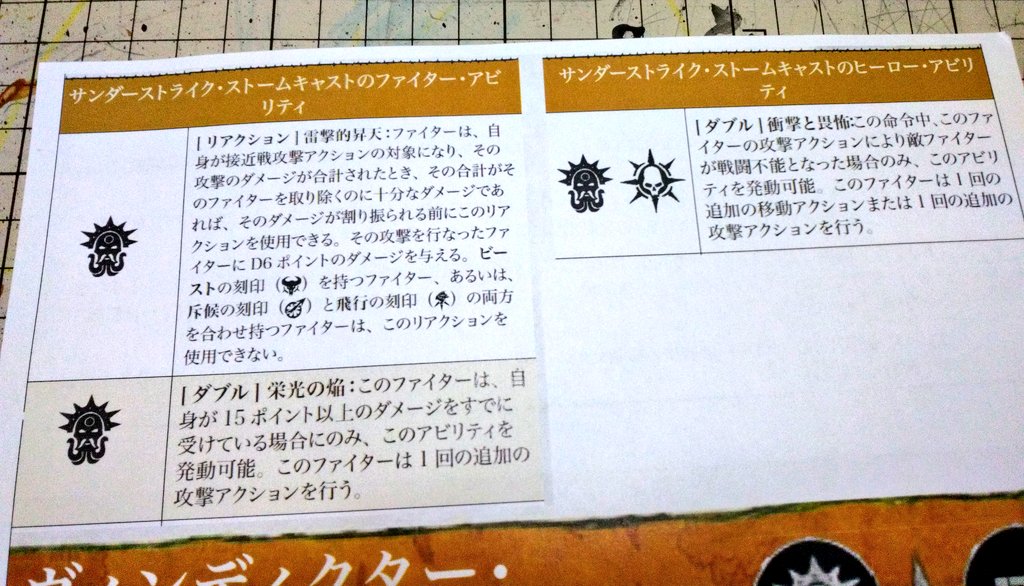 サンダーストライク・ストームキャストのファイター・アビ
リティ
[リアクション] 雷撃的昇天：ファイターは、自
身が接近戦攻撃アクションの対象になり、その
攻撃のダメージが合計されたとき、その合計がそ
のファイターを取り除くのに十分なダメージであ
れば、そのダメージが割り振られる前にこのリア
クションを使用できる。その攻撃を行なったファ
イターに D6 ポイントのダメージを与える。ビー
ストの刻印（）を持つファイター、あるいは、
斥候の刻印（）と飛行の刻印（）の両方
を合わせ持つファイターは、このリアクションを
使用できない。
[ダブル] 栄光の焔：このファイターは、自
身が 15 ポイント以上のダメージをすでに
受けている場合にのみ、このアビリティを
発動可能。このファイターは 1 回の追加の
攻撃アクションを行う。
サンダーストライク・ストームキャストのヒーロー・アビリ
ティ
[ダブル] 衝撃と畏怖：この命令中、このファ
イターの攻撃アクションにより敵ファイター
が戦闘不能となった場合のみ、このアビリ
ティを発動可能。このファイターは 1 回の
追加の移動アクションまたは 1 回の追加の
攻撃アクションを行う。
ヴィンディクター・